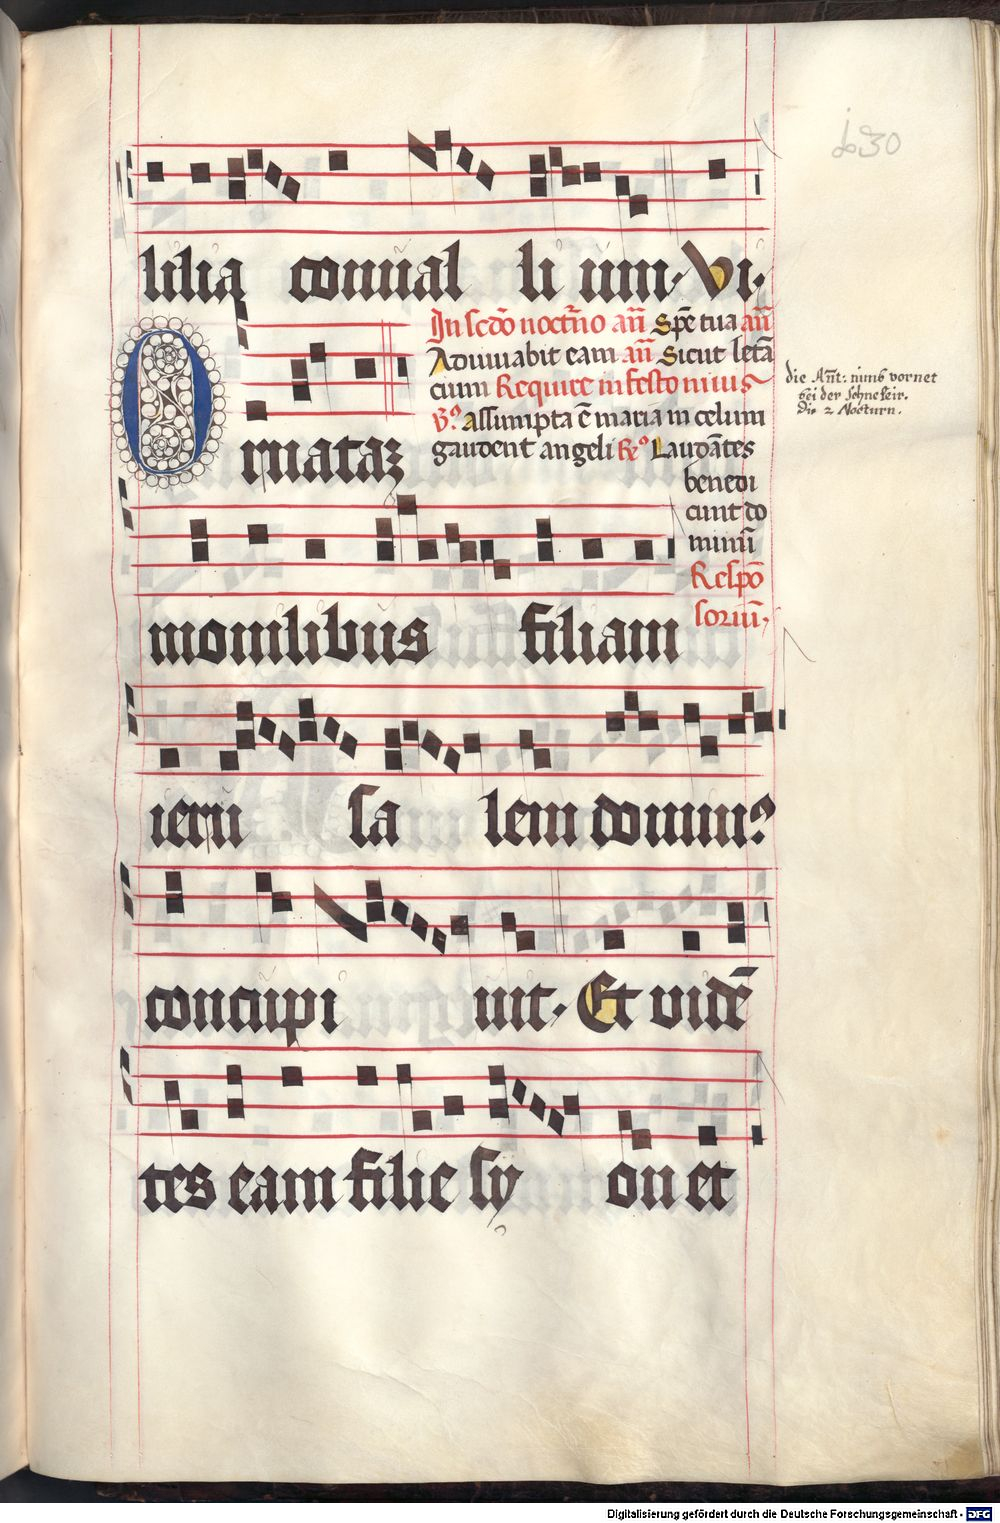 630
lilia conual li um. Vi.
In scďo noctr̄no an̄ Spē tua an̄
Adiuuabit eam an̄ Sicut letā
cium Require in festo niuis
V̊. Assumpta ē maria in celum
gaudent angeli R̊. Laudātes
benedi
cunt do
minū
Respō
soriū.
die Ant: nimb vornet
bei der Schnefeir.
Die 2 Nocturn.
Ornataꝫ
monilibus filiam
ieru sa lem domin⁹
concupi uit. Et vidē
tes eam filie sy on et
Digitalisierung gefördert durch die Deutsche Forschungsgemeinschaft - DFG